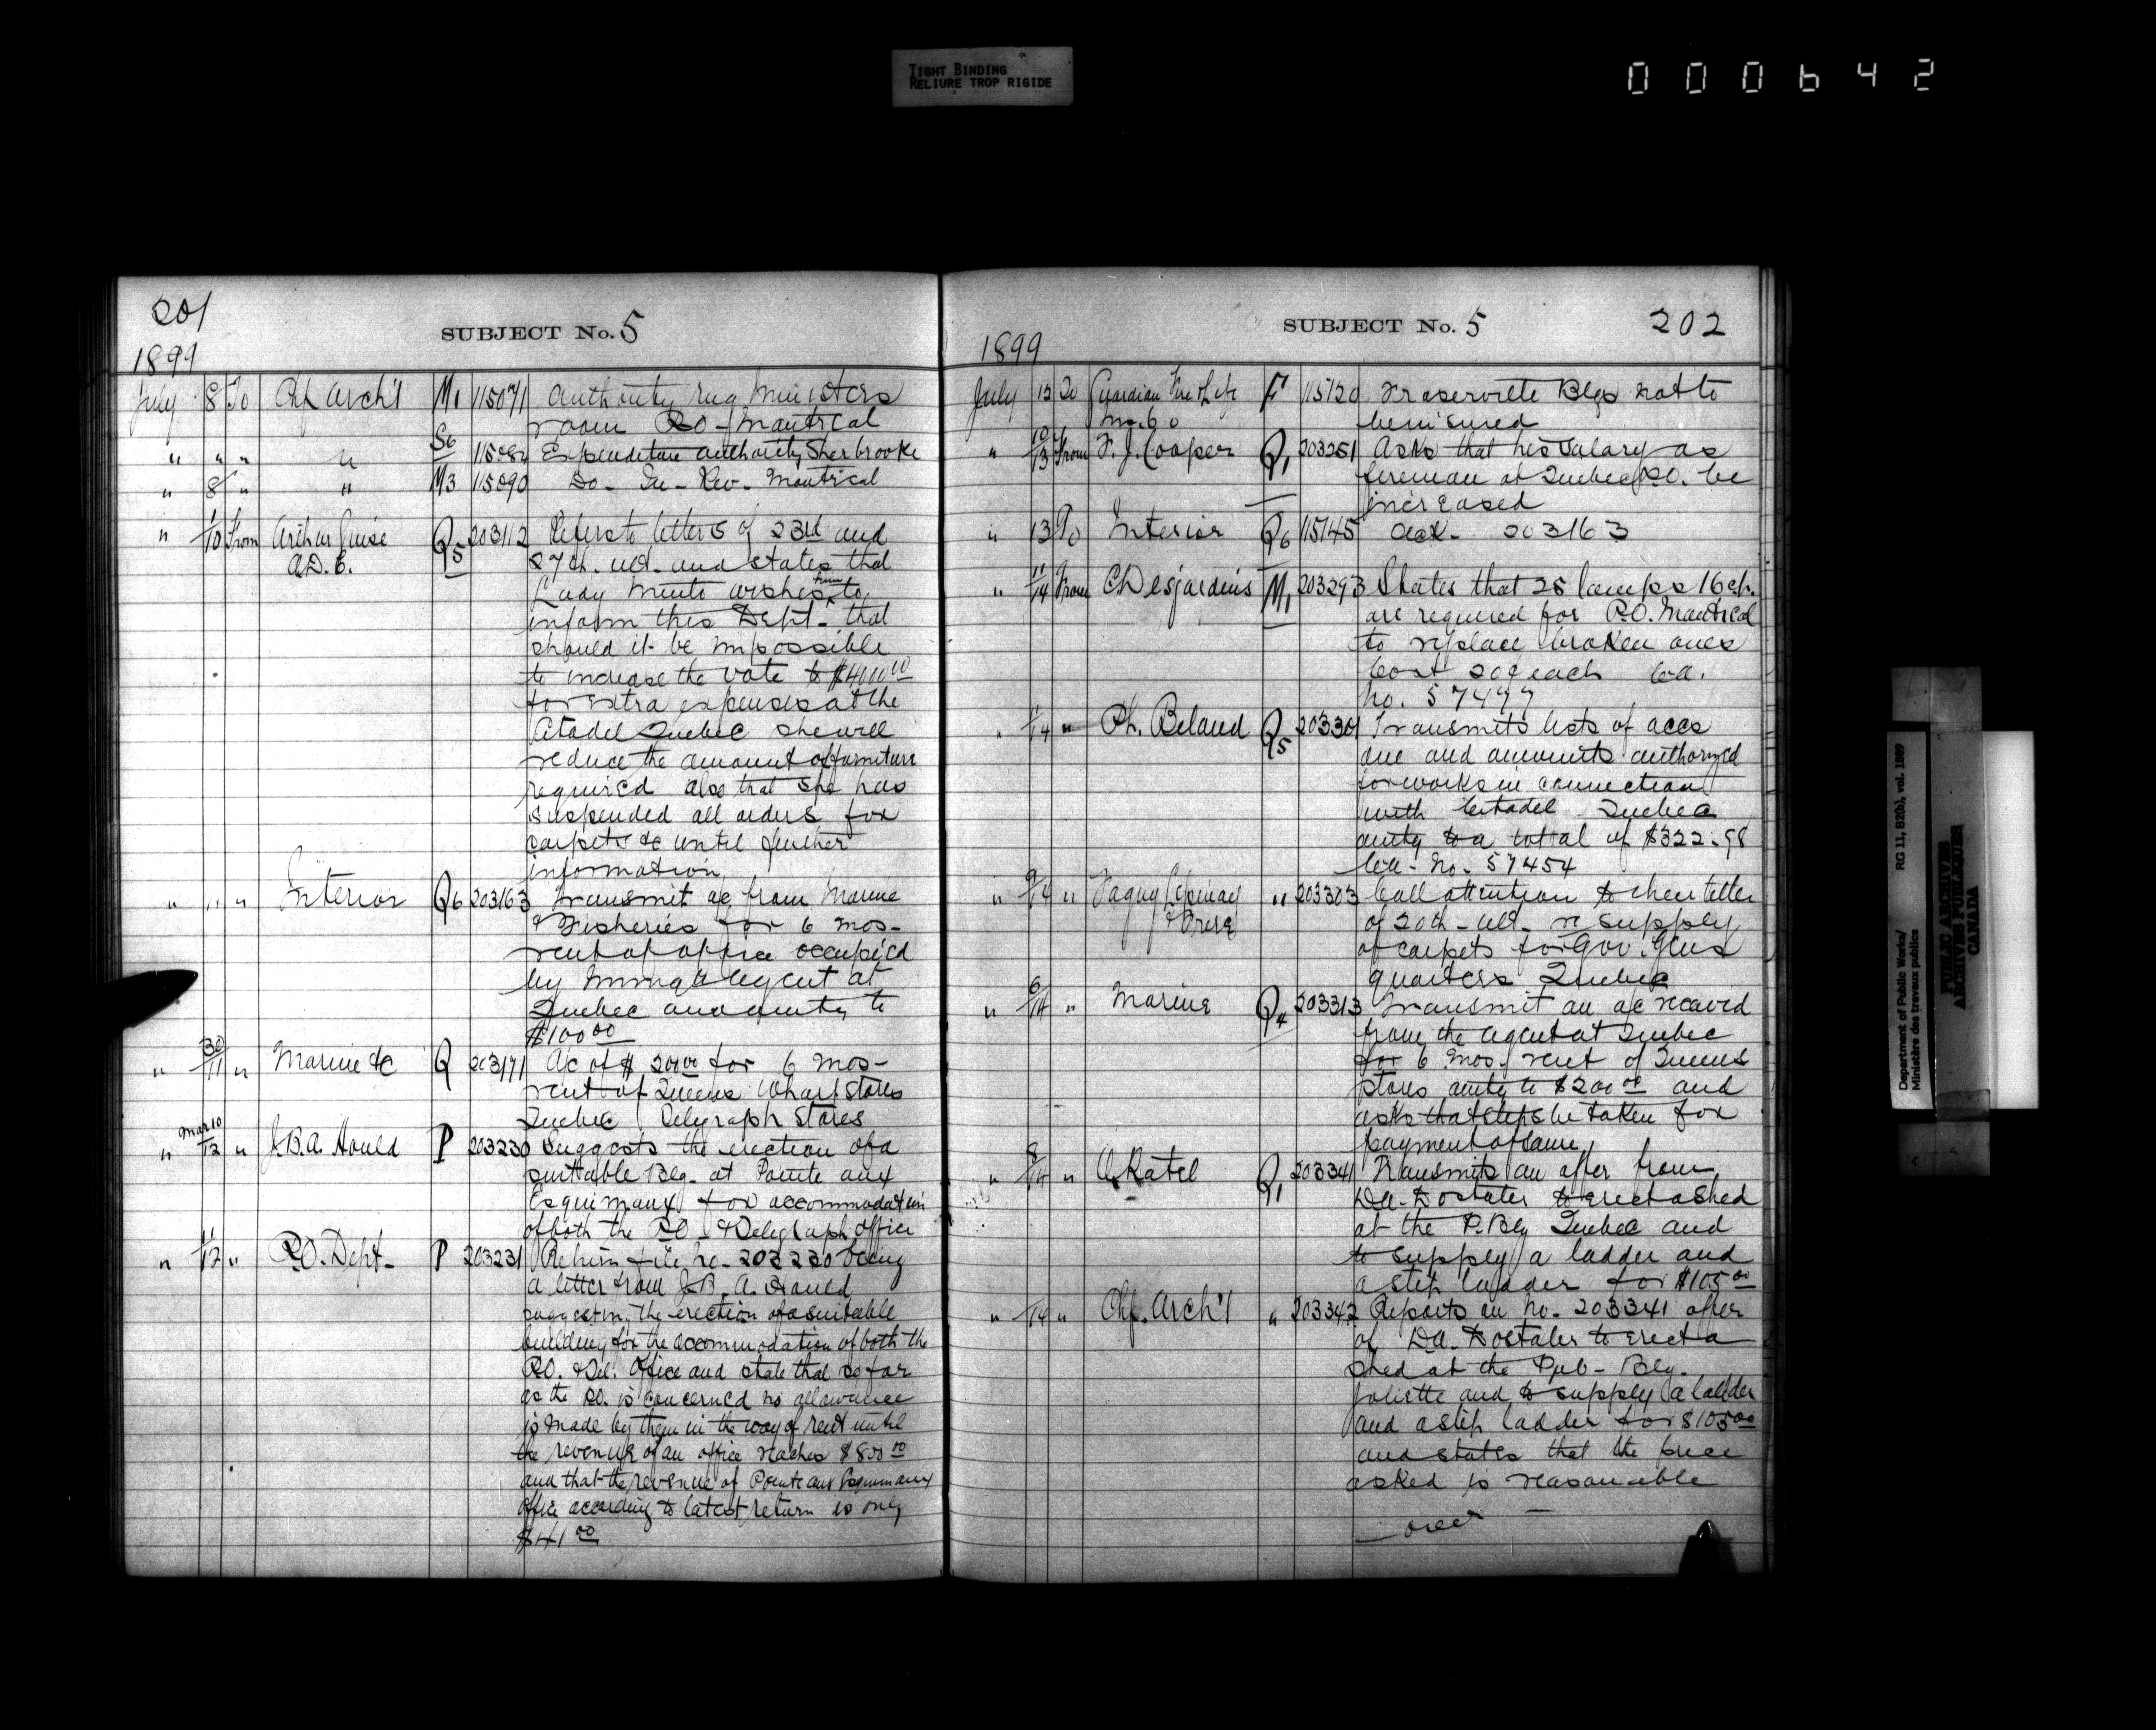 TIGHT BINDING
RELIURE TROP RIGIDE
000642
201
SUBJECT No. 5
1899
July 8 To Chf Arch't M1 115071 Authority rug Ministers
room P.O. Montreal
" " " " S6 11508 Expenditure authority Sherbrooke
" 8 " " M3 115090 Do - In - Rev. Montreal
" 1/10 From Arthur Guise Q5 203112 Refers to letters of 23rd and
A.D.C. 27th. ult. and states that
Lady Minto wishes him to
inform this Dept. that
should it be impossible
to increase the vote to $4000.00
for extra expenses at the
Citadel Quebec she will
reduce the amount of furniture
required also that she has
suspended all orders for
carpets &c until further
information
" 11 " Interior Q6 203163 Transmit a/c from Marine
& Fisheries for 6 mos-
rent of office occupied
by Immg'n Agent at
Quebec and amtg to
$100 00
" 30/11 " Marine &c Q 203171 A/c of $200 00 for 6 mos-
rent of Queens Wharf Stores
Quebec Telegraph Stores
" Mar 10/12 " J.B.A. Hould P 203230 Suggests the erection of a
suitable Blg. at Pointe aux
Esquimaux for accommodation
of both the P.O. & Telegraph office
" 11/12 " P.O. Dept. P 203231 Return file No. 203230 being
a letter from J.B.A. Hould
suggesting the erection of a suitable
building for the accommodation of both the
P.O. & Tel. Office and state that so far
as the P.O. is concerned no allowance
is made by them in the way of rent until
the revenue of an office reaches $800 00
and that the revenue of Pointe aux Esquimaux
office according to latest return is only
$41 00
SUBJECT No. 5
202
1899
July 12 To Guardian Fire & Life F 115120 Fraserville Blgs not to
Ins. Co be insured
" 10/13 From F.J. Cooper Q1 203251 Asks that his salary as
fireman at Quebec P.O. be
increased
" 13 To Interior Q6 115145 Ack. 203163
" 11/14 From C Desjardins M1 203293 States that 25 lamps 16 cp.
are required for P.O. Montreal
to replace broken ones
Cost 20¢ each Cer.
No. 57477
" 1/14 " Ph. Beland Q5 203301 Transmits lists of accs
due and amounts authorized
for works in connection
with Citadel Quebec
amtg to a total of $322.98
No. 57454
" 9/14 " Paquy Lepinay " 203303 Call attention to their letter
& Frere of 20th. ult. re supply
of carpets for Gov. Gens
quarters Quebec
" 6/14 " Marine Q4 203313 Transmit an a/c received
from the agent at Quebec
for 6 mos. rent of Queens
stores amtg to $200 00 and
asks that steps be taken for
payment of same
" 8/14 " Ratel Q1 203341 Transmits an offer from
Dostaler to erect a shed
at the P. Blg Quebec and
to supply a ladder and
a step ladder for $105 00
" /14 " Chf. Arch't " 203342 Reports on No. 203341 offer
of Dostaler to erect a
shed at the Pub. Blg.
Joliette and to supply a ladder
and a step ladder for $105 00
and states that the price
asked is reasonable
over
Department of Public Works/
Ministère des travaux publics
RG 11, B2(b), vol. 1889
PUBLIC ARCHIVES
ARCHIVES PUBLIQUES
CANADA